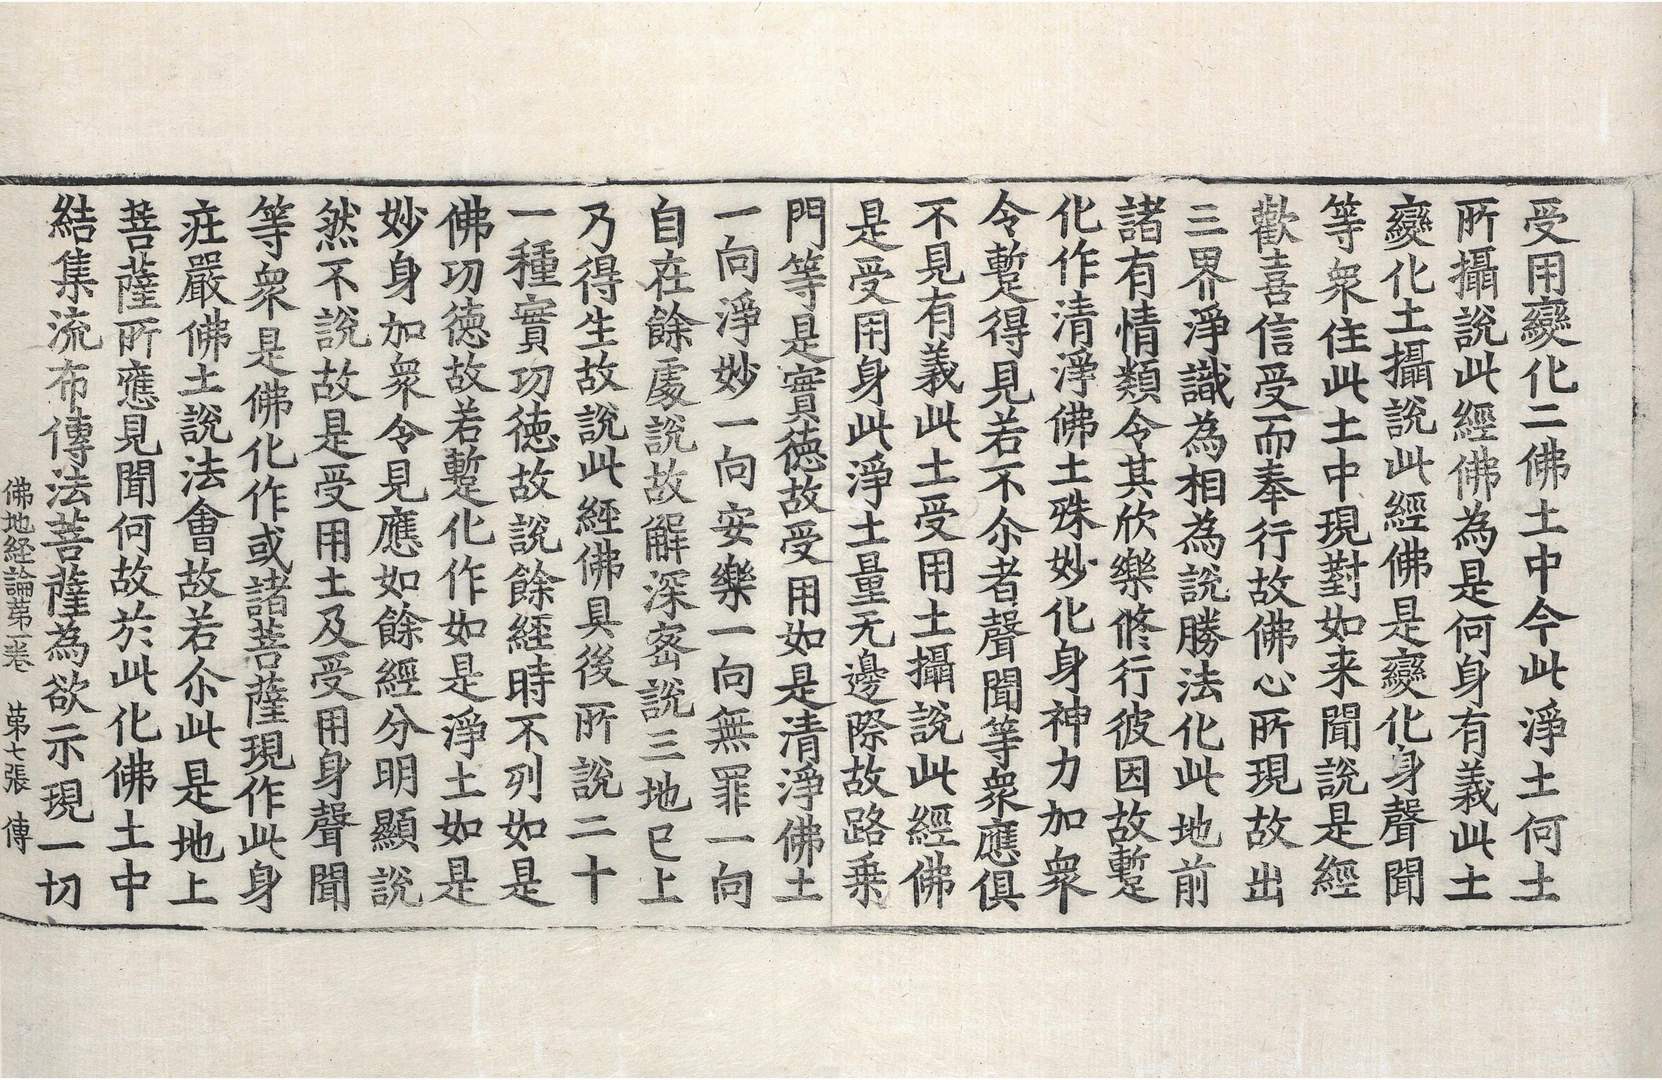 受用變化二佛土中今此淨土何土
所攝說此經佛為是何身有義此土
變化土攝說此經佛是變化身聲聞
等衆住此土中現對如来聞說是經
歡喜信受而奉行故佛心所現故出
三界淨識為相為說勝法化此地前
諸有情類令其欣樂脩行彼因故蹔
化作清淨佛土殊妙化身神力加衆
令蹔得見若不尒者聲聞等衆應俱
不見有義此土受用土攝說此經佛
是受用身此淨土量无邊際故路乗
門等是實德故受用如是清淨佛土
一向淨妙一向安樂一向無罪一向
自在餘處說故解深密說三地已上
乃得生故說此經佛具後所說二十
一種實功徳故說餘經時不列如是
佛功徳故若蹔化作如是淨土如是
妙身加衆令見應如餘經分明顯說
然不說故是受用土及受用身聲聞
等衆是佛化作或諸菩薩現作此身
莊嚴佛土說法會故若尒此是地上
菩薩所應見聞何故於此化佛土中
結集流布傳法菩薩為欲示現一切
佛地経論苐一卷　苐七張　傳